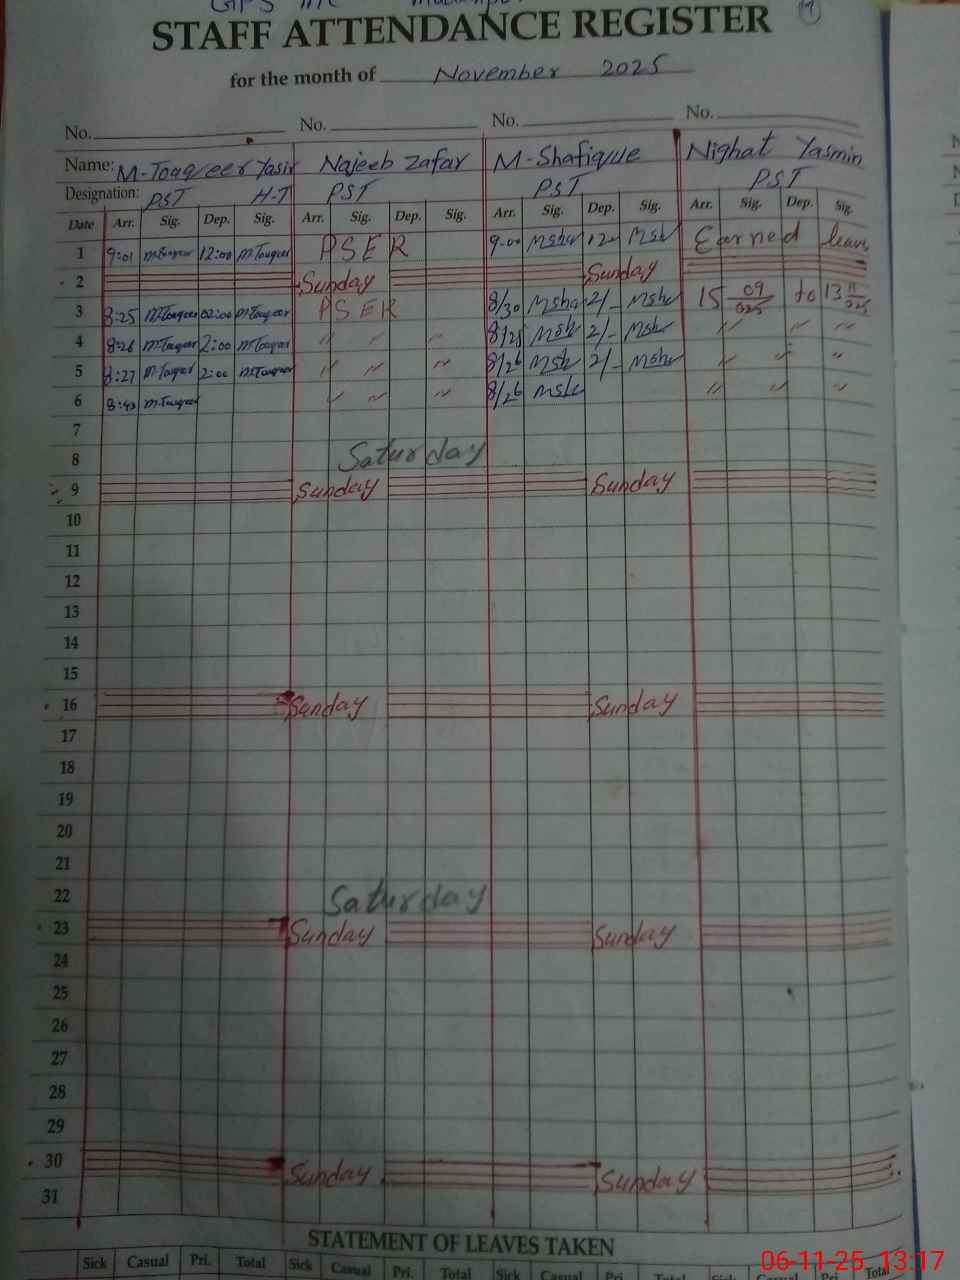 GPS
STAFF ATTENDANCE REGISTER
for the month of November 2025
No. No. No. No.
Name: M-Touqeer Yasir Najeeb Zafar M-Shafique Nighat Yasmin
Designation: PST H-T PST PST PST
Date Arr. Sig. Dep. Sig. Arr. Sig. Dep. Sig. Arr. Sig. Dep. Sig. Arr. Sig. Dep. Sig.
1 9:01 M-Touqeer 12:00 M-Touqeer PSER 9-00 Msha 12- Msh Earned leave
2 Sunday Sunday
3 8:25 M-Touqeer 02:00 M-Touqeer PSER 8/30 Msha 2/- Msha 15 09/025 to 13 11/025
4 8:26 M-Touqeer 2:00 M-Touqeer " " " 8/25 Msh 2/- Msh " " "
5 8:27 M-Touqeer 2:00 M-Touqeer " " " 8/26 Msh 2/- Msha " " "
6 8:40 M-Touqeer " " " 8/26 Msh " " "
7
8 Saturday
9 Sunday Sunday
10
11
12
13
14
15
16 Sunday Sunday
17
18
19
20
21
22 Saturday
23 Sunday Sunday
24
25
26
27
28
29
30 Sunday Sunday
31
STATEMENT OF LEAVES TAKEN
Sick Casual Pri. Total Sick Casual Pri. Total Sick Casual Pri. Total Sick Casual Pri. Total
06-11-25 13:17